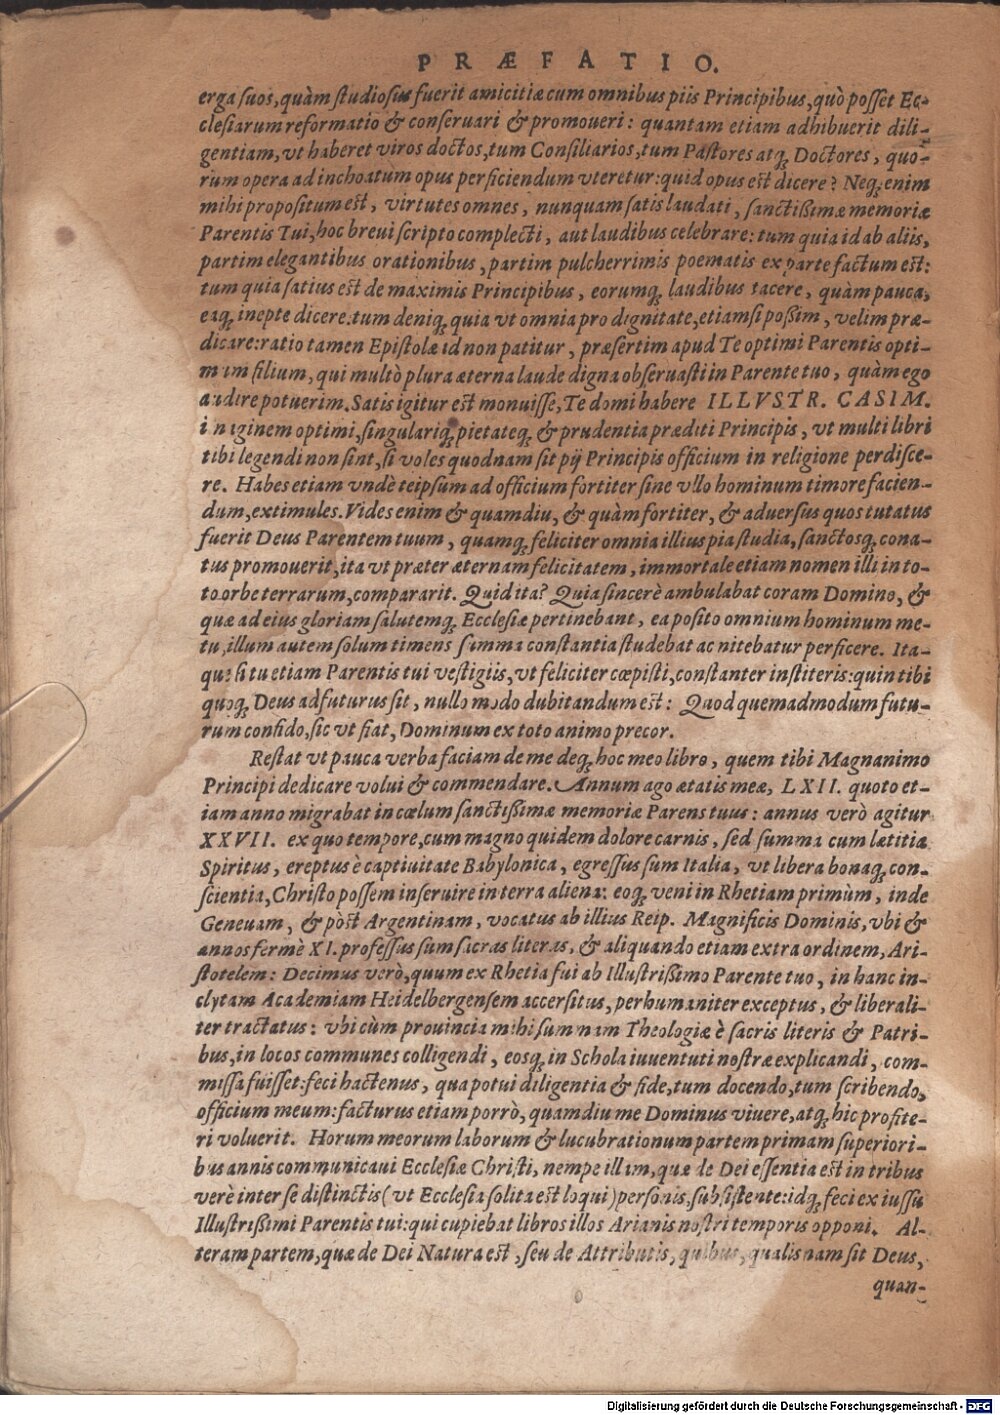 PRÆFATIO.
erga suos, quàm studiosus fuerit amicitiæ cum omnibus piis Principibus, quò posset Ec-
clesiarum reformatio & conseruari & promoueri: quantam etiam adhibuerit dili-
gentiam, vt haberet viros doctos, tum Consiliarios, tum Pastores atq; Doctores, quo-
rum opera ad inchoatum opus perficiendum vteretur: quid opus est dicere? Neq; enim
mihi propositum est, virtutes omnes, nunquam satis laudati, sanctißimæ memoriæ
Parentis Tui, hoc breui scripto complecti, aut laudibus celebrare: tum quia id ab aliis,
partim elegantibus orationibus, partim pulcherrimis poematis ex parte factum est:
tum quia satius est de maximis Principibus, eorumq; laudibus tacere, quàm pauca,
eaq; inepte dicere: tum deniq; quia vt omnia pro dignitate, etiamsi poßim, velim præ-
dicare: ratio tamen Epistolæ id non patitur, præsertim apud Te optimi Parentis opti-
mum filium, qui multò plura æterna laude digna obseruasti in Parente tuo, quàm ego
audire potuerim. Satis igitur est monuisse, Te domi habere ILLVSTR. CASIM.
imaginem optimi, singulariq; pietateq; & prudentia præditi Principis, vt multi libri
tibi legendi non sint, si voles quodnam sit pij Principis officium in religione perdisce-
re. Habes etiam vndè teipsum ad officium fortiter sine vllo hominum timore facien-
dum, extimules. Vides enim & quamdiu, & quàm fortiter, & aduersus quos tutatus
fuerit Deus Parentem tuum, quamq; feliciter omnia illius pia studia, sanctosq; cona-
tus promouerit, ita vt præter æternam felicitatem, immortale etiam nomen illi in to-
to orbe terrarum, compararit. Quid ita? Quia sincerè ambulabat coram Domino, &
quæ ad eius gloriam salutemq; Ecclesiæ pertinebant, ea posito omnium hominum me-
tu, illum autem solum timens summa constantia studebat ac nitebatur perficere. Ita-
que si tu etiam Parentis tui vestigiis, vt feliciter cœpisti, constanter institeris: quin tibi
quoq; Deus adfuturus sit, nullo modo dubitandum est: Quod quemadmodum futu-
rum confido, sic vt fiat, Dominum ex toto animo precor.
Restat vt pauca verba faciam de me deq; hoc meo libro, quem tibi Magnanimo
Principi dedicare volui & commendare. Annum ago ætatis meæ, LXII. quoto et-
iam anno migrabat in cœlum sanctißimæ memoriæ Parens tuus: annus verò agitur
XXVII. ex quo tempore, cum magno quidem dolore carnis, sed summa cum lætitia
Spiritus, ereptus è captiuitate Babylonica, egressus sum Italia, vt libera bonaq; con-
scientia, Christo possem inseruire in terra aliena: eoq; veni in Rhetiam primùm, inde
Geneuam, & pòst Argentinam, vocatus ab illius Reip. Magnificis Dominis, vbi &
annos fermè XI. professus sum sacras literas, & aliquando etiam extra ordinem, Ari-
stotelem: Decimus verò, quum ex Rhetia fui ab Illustrißimo Parente tuo, in hanc in-
clytam Academiam Heidelbergensem accersitus, perhumaniter exceptus, & liberali-
ter tractatus: vbi cùm prouincia mihi summam Theologiæ è sacris literis & Patri-
bus, in locos communes colligendi, eosq; in Schola iuuentuti nostræ explicandi, com-
missa fuisset: feci hactenus, qua potui diligentia & fide, tum docendo, tum scribendo,
officium meum: facturus etiam porrò, quamdiu me Dominus viuere, atq; hic profite-
ri voluerit. Horum meorum laborum & lucubrationum partem primam superiori-
bus annis communicaui Ecclesiæ Christi, nempe illam, quæ de Dei essentia est in tribus
verè inter se distinctis (vt Ecclesia solita est loqui) personis, subsistente: idq; feci ex iussu
Illustrißimi Parentis tui: qui cupiebat libros illos Arianis nostri temporis opponi. Al-
teram partem, quæ de Dei Natura est, seu de Attributis, quibus, qualisnam sit Deus,
quan-
Digitalisierung gefördert durch die Deutsche Forschungsgemeinschaft - DFG